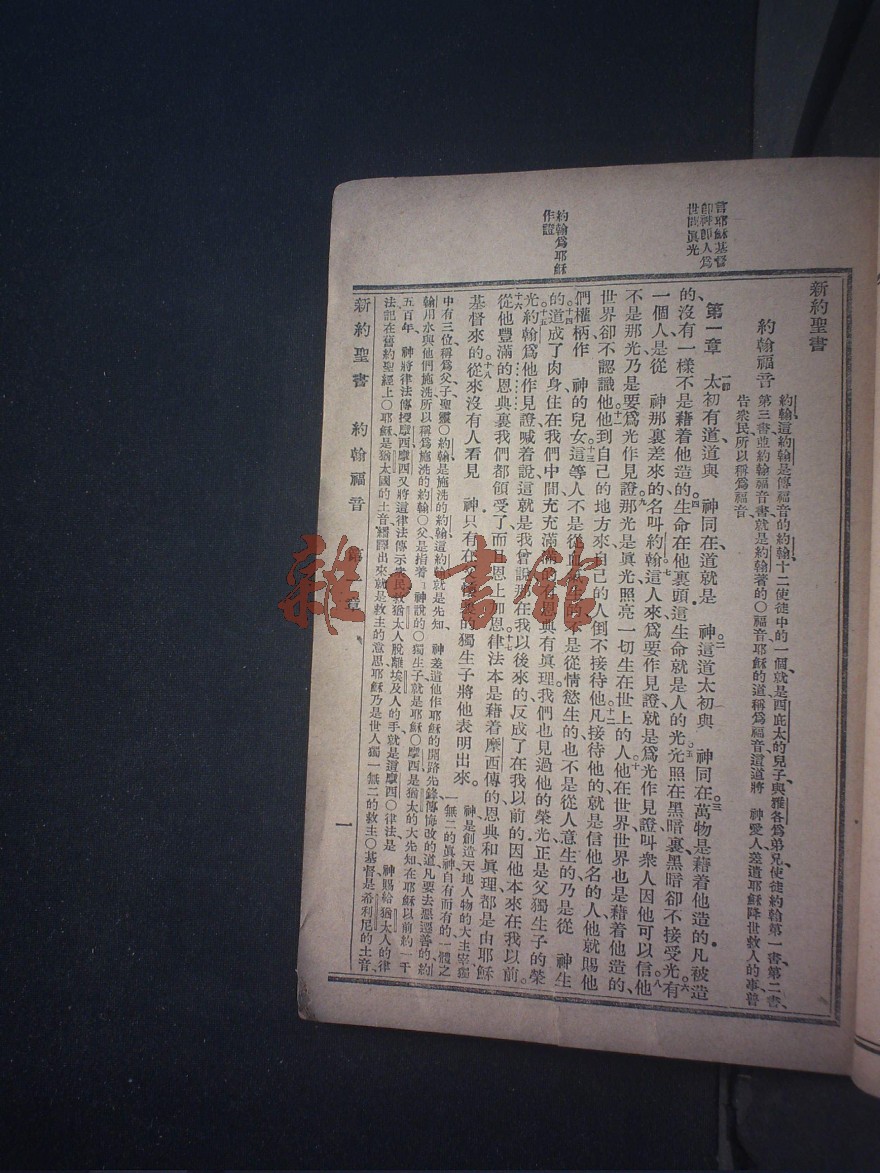 新約聖書
約翰福音
約翰、這約翰是傳福音的約翰十二使徒中的一個、就是西庇太的兒子、與雅各爲弟兄、使徒約翰第一書、第二書、
第三書、並約翰福音書、就是約翰著的〇福音、耶穌的道稱爲福音、這道將 神愛人、差遣耶穌降世救人的事、普
告衆民、所以稱爲福音、
言耶穌基督
卽神卽人爲
世間眞光
第一章 一節太初有道、道與 神同在、道就是 神。二這道太初與 神同在。三萬物是藉着他造的凡被造
的、沒有一樣不是藉着他造的。四生命在他裏頭、這生命就是人的光。五光照在黑暗裏、黑暗卻不接受光。六有
一個人、是從 神那裏差來的、名叫約翰。七這人來、爲要作見證、就是爲光作見證、叫衆人因他可以信。八他
不是那光、乃是要爲光作見證。九那光是眞光、照亮一切生在世上的人。十他在世界、世界也是藉着他造的、
世界卻不認識他。十一他到自己的地方來、自己的人倒不接待他。十二凡接待他的、就是信他名的人、他就賜他
們權柄、作 神的兒女。十三這等人不是從血氣生的、不是從情慾生的、也不是從人意生的、乃是從 神生
的。十四道成了肉身、住在我們中間、充充滿滿的有恩典有眞理、我們也見過他的榮光、正是父獨生子的榮
約翰爲耶穌
作證
光。十五約翰爲他作見證、喊着說、這就是我曾說、那在我以後來的、反成了在我以前的、因他本來在我以前。
十六從他豐滿的恩典裏、我們都領受了、而且恩上加恩。十七律法本是藉着摩西傳的、恩典和眞理、都是由耶穌
基督來的。十八從來沒有人看見 神、只有在父懷裏的獨生子將他表明出來。
神是創造天地人物的大主宰、獨
一無二的眞神、自有而有的、一體之
中有三位、稱爲父、子、聖靈〇約翰是施洗的約翰、這約翰就是先知、 神差遣他作耶穌的開路先鋒、傳悔改的道、凡要去惡遷善的、約
翰用水與他們施洗、所以稱爲施洗的約翰〇父是指着 神說的〇獨生子就是耶穌〇摩西是猶太的大先知、在耶穌以前約一千
五百年、 神將律法傳授摩西、摩西又將這律法傳示衆民、救猶太人脫離埃及人的手、就是這摩西〇律法是 神賜給猶太人的律
法、記在舊約聖經上〇耶穌是猶太國的土音、繙譯出來就是救主的意思、耶穌乃是世人獨一無二的救主〇基督是希利尼的土音、
新約聖書 約翰福音 第一章 一
雜·書館